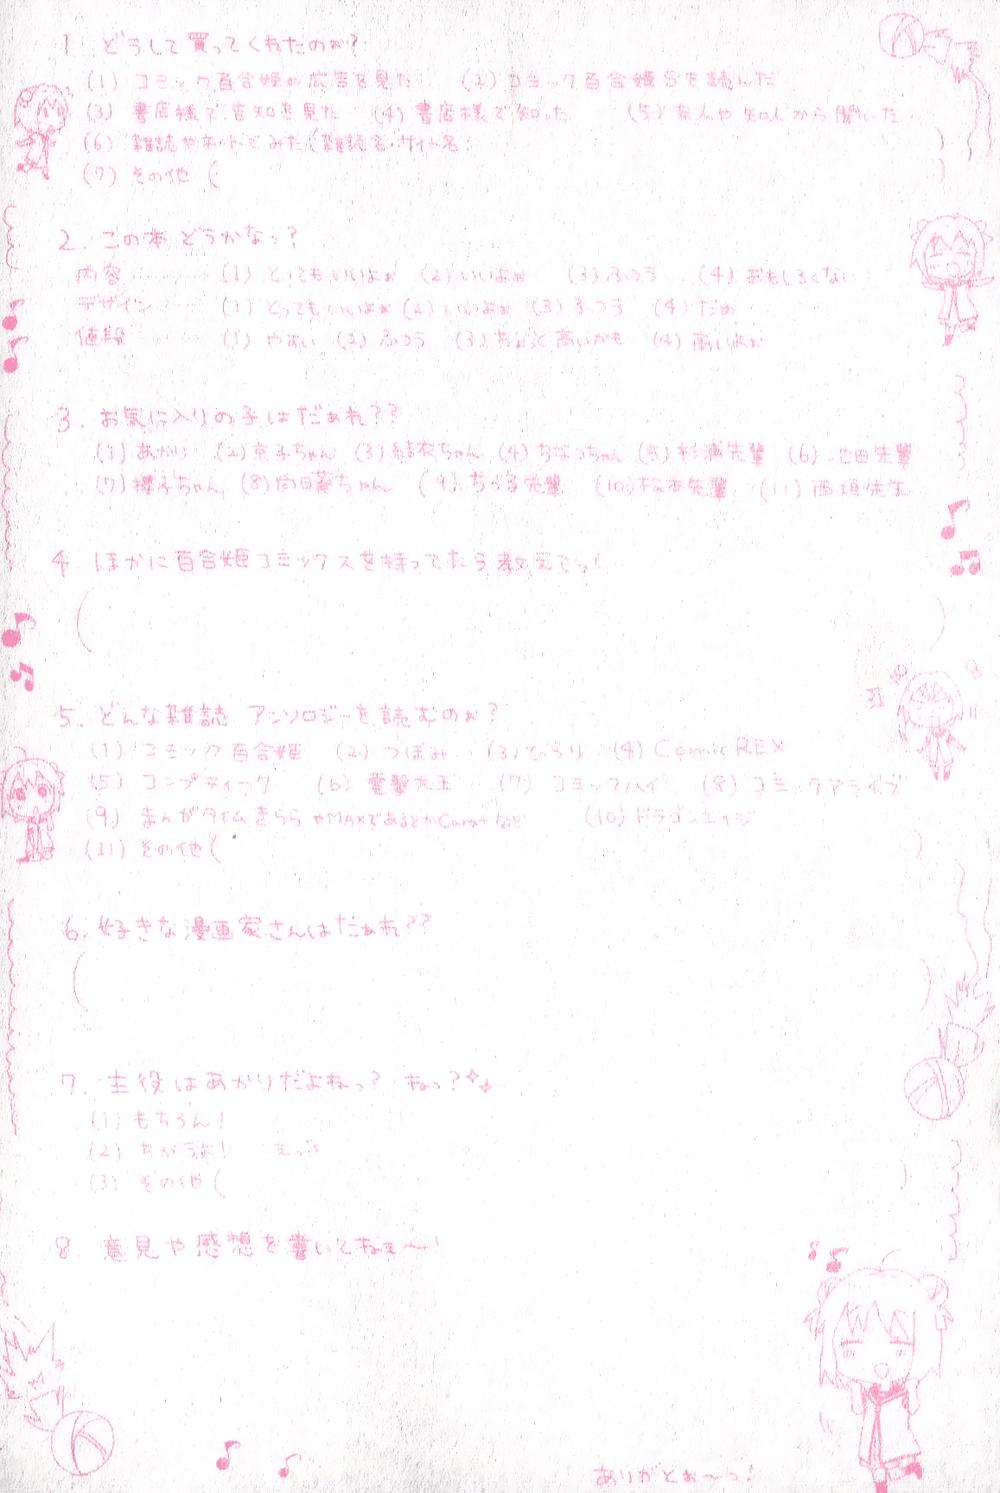 1. どうして買ってくれたのぉ?
(1) コミック百合姫の広告を見た (2) コミック百合姫Sを読んだ
(3) 書店様で告知を見た (4) 書店様で知った (5) 友人や知人から聞いた
(6) 雑誌やネットでみた(雑誌名・サイト名: )
(7) その他 ( )
2. この本どうかなっ?
内容 (1) とってもいいよぉ (2) いいよぉ (3) ふつう (4) おもしろくない
デザイン (1) とってもいいよぉ (2) いいよぉ (3) ふつう (4) だめ
値段 (1) やすい (2) ふつう (3) ちょっと高いかも (4) 高いよぉ
3. お気に入りの子はだぁれ??
(1) あかり (2)京子ちゃん (3) 結衣ちゃん (4) ちなつちゃん (5) 杉浦先輩 (6) 池田先輩
(7) 櫻子ちゃん (8) 向日葵ちゃん (9) ちづる先輩 (10) 松本先輩 (11) 西垣先生
4 ほかに百合姫コミックスを持ってたら教えてっ!
( )
5. どんな雑誌 アンソロジーを読むのぉ?
(1) コミック百合姫 (2) つぼみ (3) ひらり (4) Comic REX
(5) コンプティーク (6) 電撃大王 (7) コミックハイ (8) コミックアライブ
(9) まんがタイムきららやMAXであるとかCaratなど (10) ドラゴンエイジ
(11) その他 ( )
6. 好きな漫画家さんはだぁれ??
( )
7. 主役はあかりだよねっ? ねっ?
(1) もちろん!
(2) ちがうよ! えっ
(3) その他 ( )
8 意見や感想を書いてねぇ〜!
ありがとぉ〜っ!